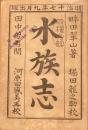 明治十七年九月出版
畔田翠山著 堀田龍之助校
水族志
田中芳男閲 河原田盛美再校